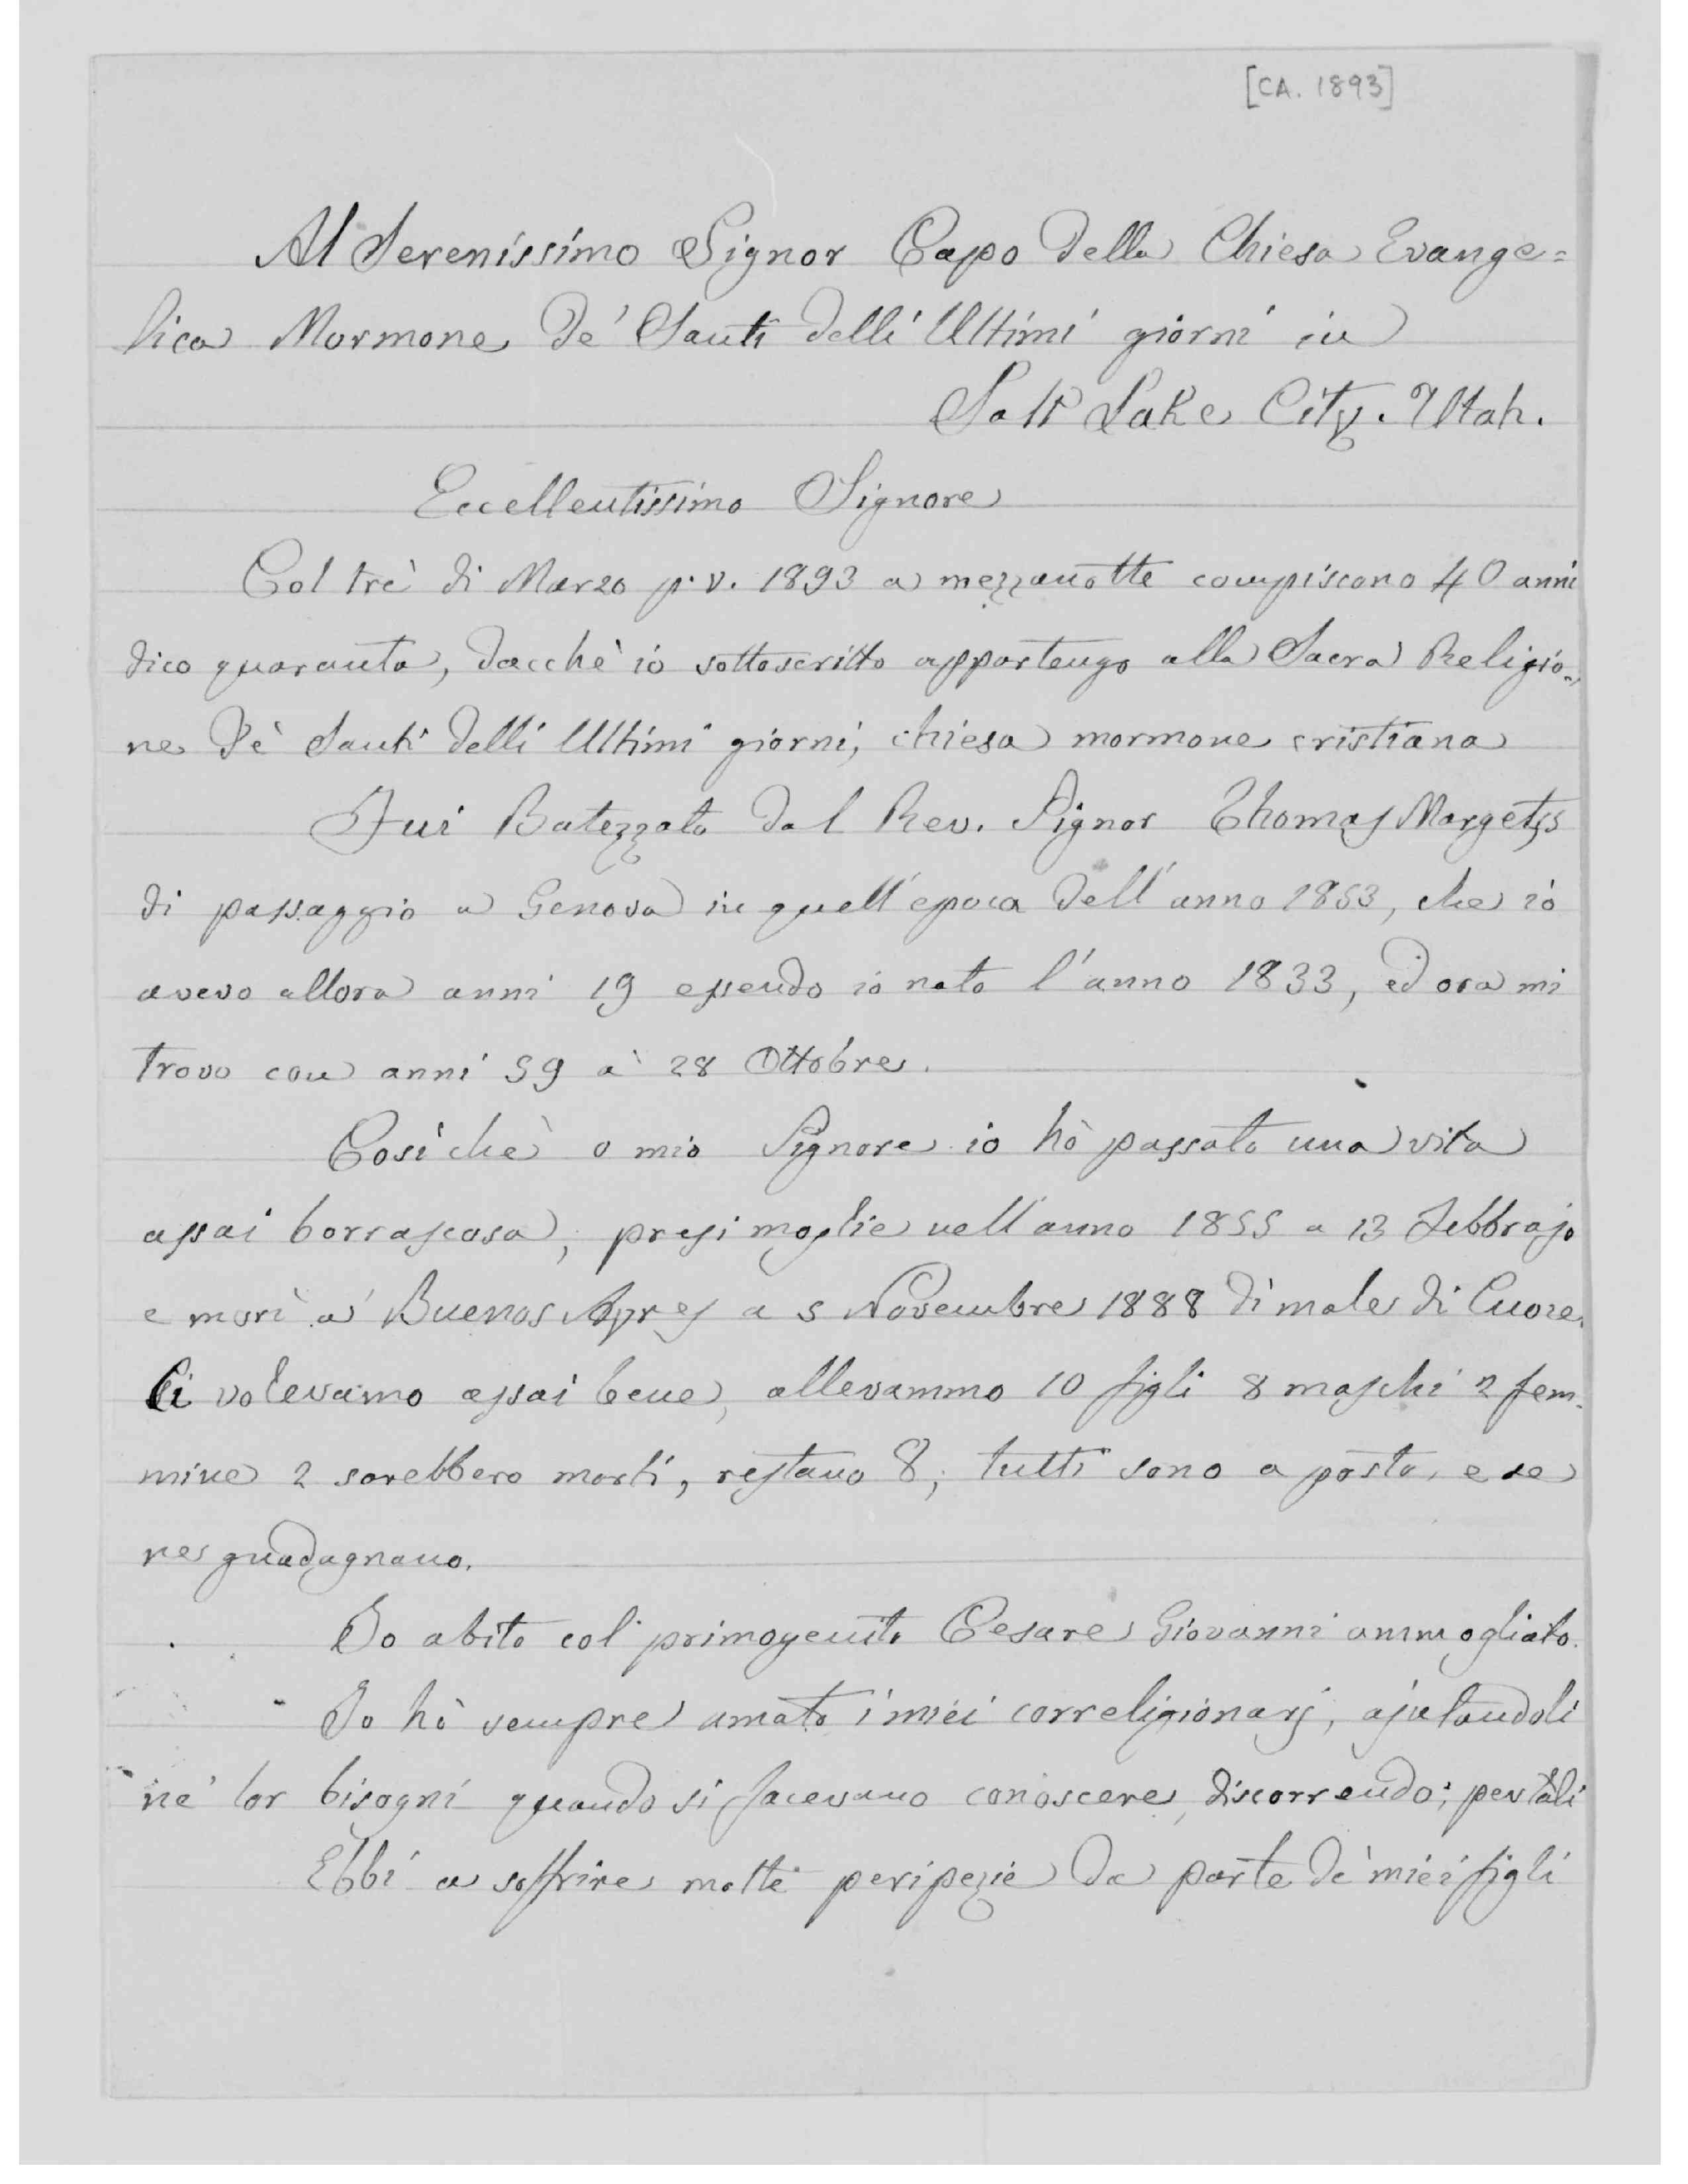 [CA. 1893]
Al Serenissimo Signor Capo della Chiesa Evange=
lica Mormone de' Santi delli Ultimi giorni in
Salt Lake City. Utah.
Eccellentissimo Signore
Col trè di Marzo p. v. 1893 a mezzanotte compiscono 40 anni
dico quaranta, dacchè io sottoscritto appartengo alla Sacra Religio-
ne dè Santi delli Ultimi giorni, chiesa mormone cristiana
Fui Batezzato dal Rev. Signor Thomas Margetss
di passaggio a Genova in quell'epoca dell'anno 1853, che io
avevo allora anni 19 essendo io nato l'anno 1833, ed ora mi
trovo con anni 59 a' 28 Ottobre.
Cosichè o mio Signore io hò passato una vita
assai borrascosa, presi moglie nell'anno 1855 a 13 Febbrajo
e morì a' Buenos Ayres a 5 Novembre 1888 di male di Cuore.
Ci volevamo assai bene, allevammo 10 figli 8 maschi 2 fem-
mine 2 sarebbero morti, restano 8, tutti sono a posto, e se
ne guadagnano.
Io abito col primogenito Cesare Giovanni ammogliato.
Io hò sempre amato i miei correligionarj, ajutandoli
ne' lor bisogni quando si facevano conoscere, discorrendo; per tali
Ebbi a soffrire molte peripezie da parte dè miei figli